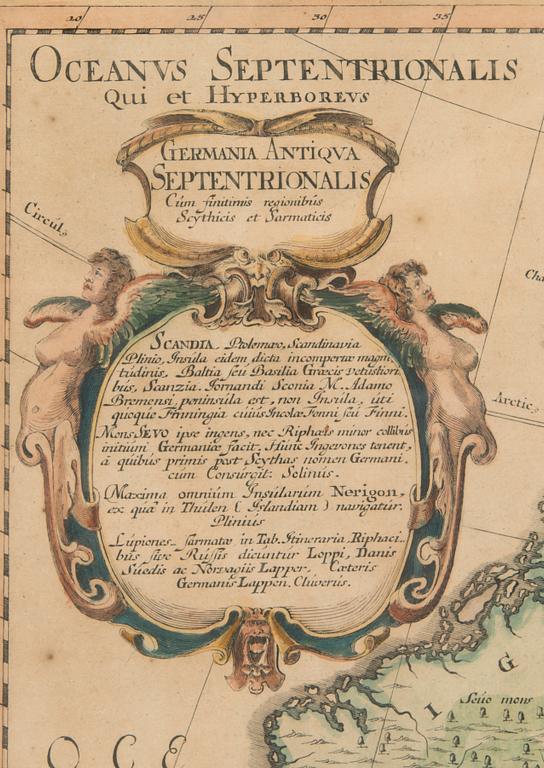 20 25 30 35
OCEANVS SEPTENTRIONALIS
Qui et HYPERBOREVS
GERMANIA ANTIQVA
SEPTENTRIONALIS
Cum finitimis regionibus
Scythicis et Sarmaticis
Circul9
Cha
SCANDIA Ptolemæo, Scandinavia
Plinio, Insula eidem dicta incompertæ magni
tudinis, Baltia seu Basilia Græcis vetustiori
bus, Scanzia. Jornandi Sconia M. Adamo
Bremensi peninsula est, non Insula, uti
quoque Finningia cuius Incolæ Fenni seu Finni.
Mons SEVO ipse ingens, nec Riphæis minor collibus
initium Germaniæ facit. Hunc Ingevones tenent,
à quibus primis post Scythas nomen Germani
cum Consurgit. Solinus.
Maxima omnium Insularum Nerigon,
ex qua in Thulen (Islandiam) navigatur.
Plinius
Lupiones sarmatæ in Tab. Itineraria Riphaei
bus sive Russis dicuntur Loppi, Danis
Suedis ac Norvagiis Lapper, Cæteris
Germanis Lappen. Cluverus.
Arctic9
I G
Sevo mons
OCE